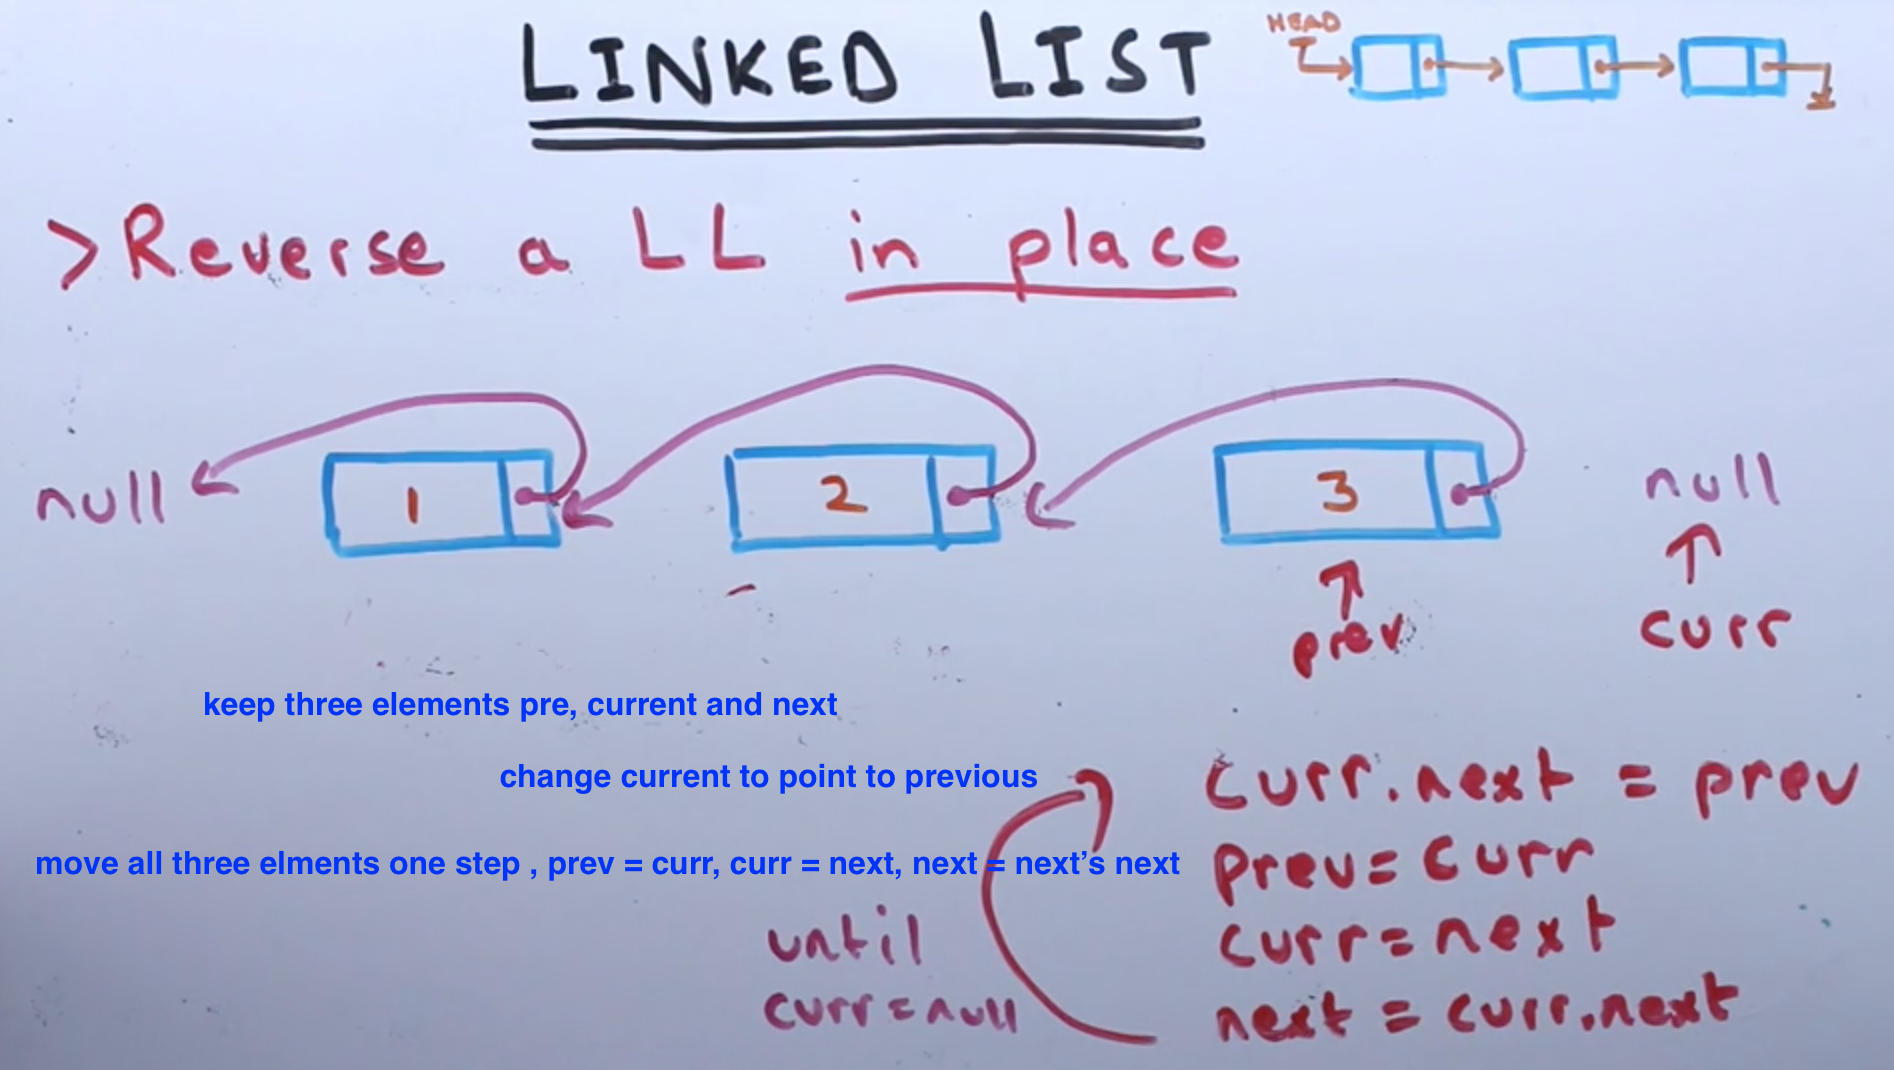 LINKED LIST
HEAD
> Reverse a LL in place
null
1
2
3
null
prev
curr
keep three elements pre, current and next
change current to point to previous
move all three elments one step , prev = curr, curr = next, next = next's next
curr.next = prev
prev = curr
curr = next
next = curr.next
until
curr = null